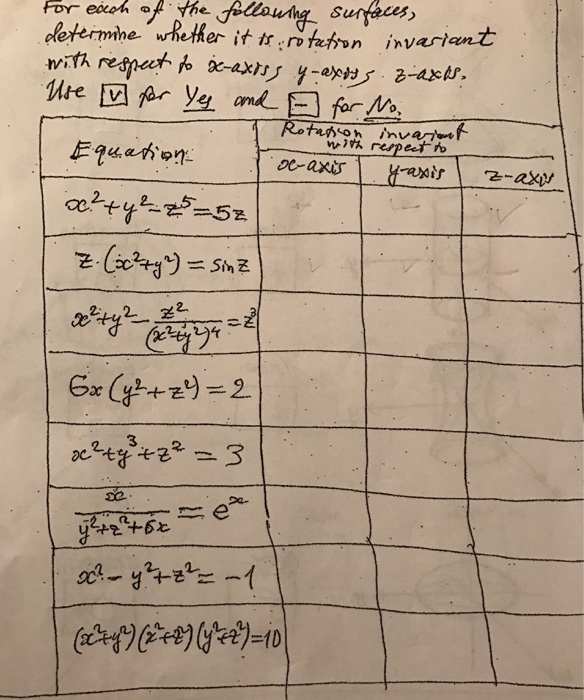 For each of the following surfaces,
determine whether it is rotation invariant
with respect to x-axis, y-axis, z-axis.
Use [v] for Yes and [–] for No.
Equation
Rotation invariant
with respect to
x-axis y-axis z-axis
x²+y²-z⁵=5z
z·(x²+y²) = sin z
x²+y² - z²/(x²+y²)⁴ = z³
6x(y²+z²) = 2
x²+y³+z² = 3
x/(y²+z²+6x) = eˣ
x²-y²+z² = -1
(x²+y²)(x²+z²)(y²+z²)=10